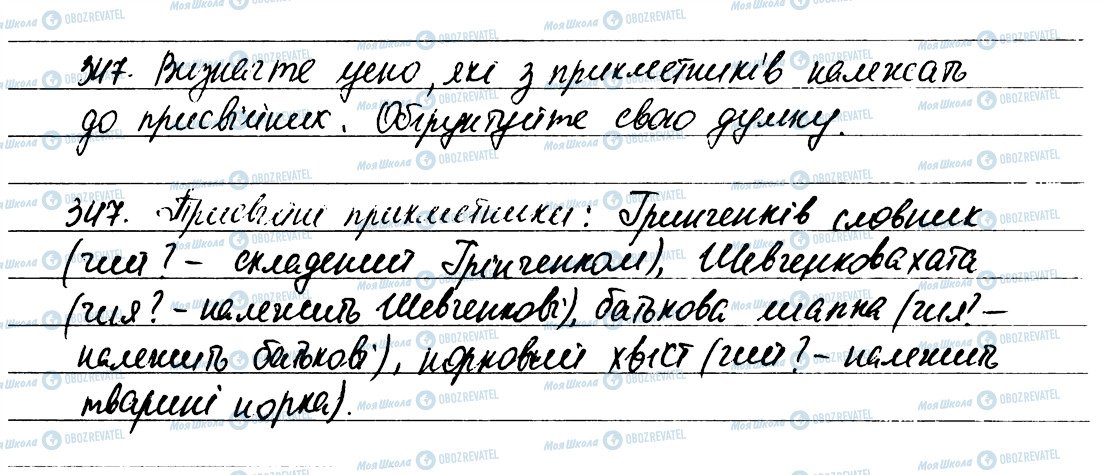 347. Визначте усно, які з прикметників належать
до присвійних. Обґрунтуйте свою думку.
347. Присвійні прикметники: Грінченків словник
(чий? – складений Грінченком), Шевченкова хата
(чия? – належить Шевченкові), батькова шапка (чия? –
належить батькові), норковий хвіст (чий? – належить
тварині норка).